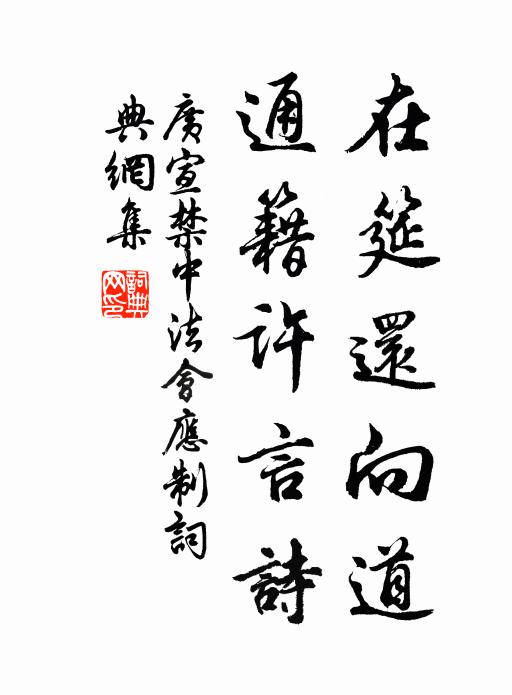 在筵還向道
通籍許言詩
廣宣禁中法會應制詞
典網集
詞典網印